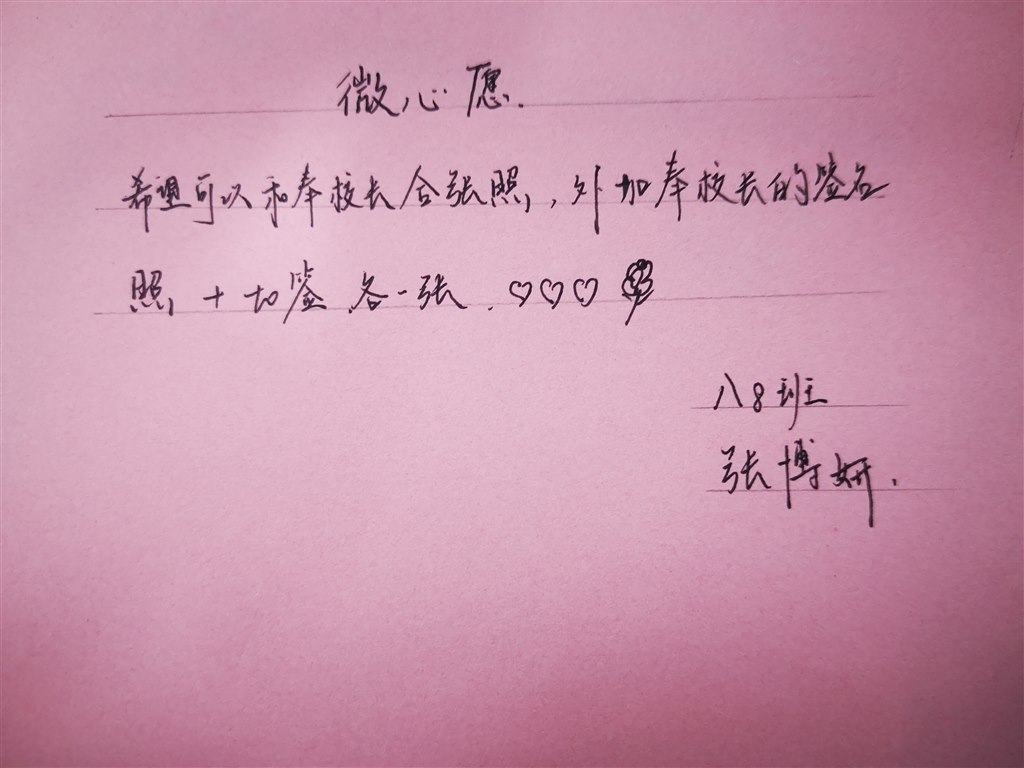 微心愿.
希望可以和奉校长合张照,外加奉校长的签名
照+to签 各一张.♡♡♡
八8班
张博妍.